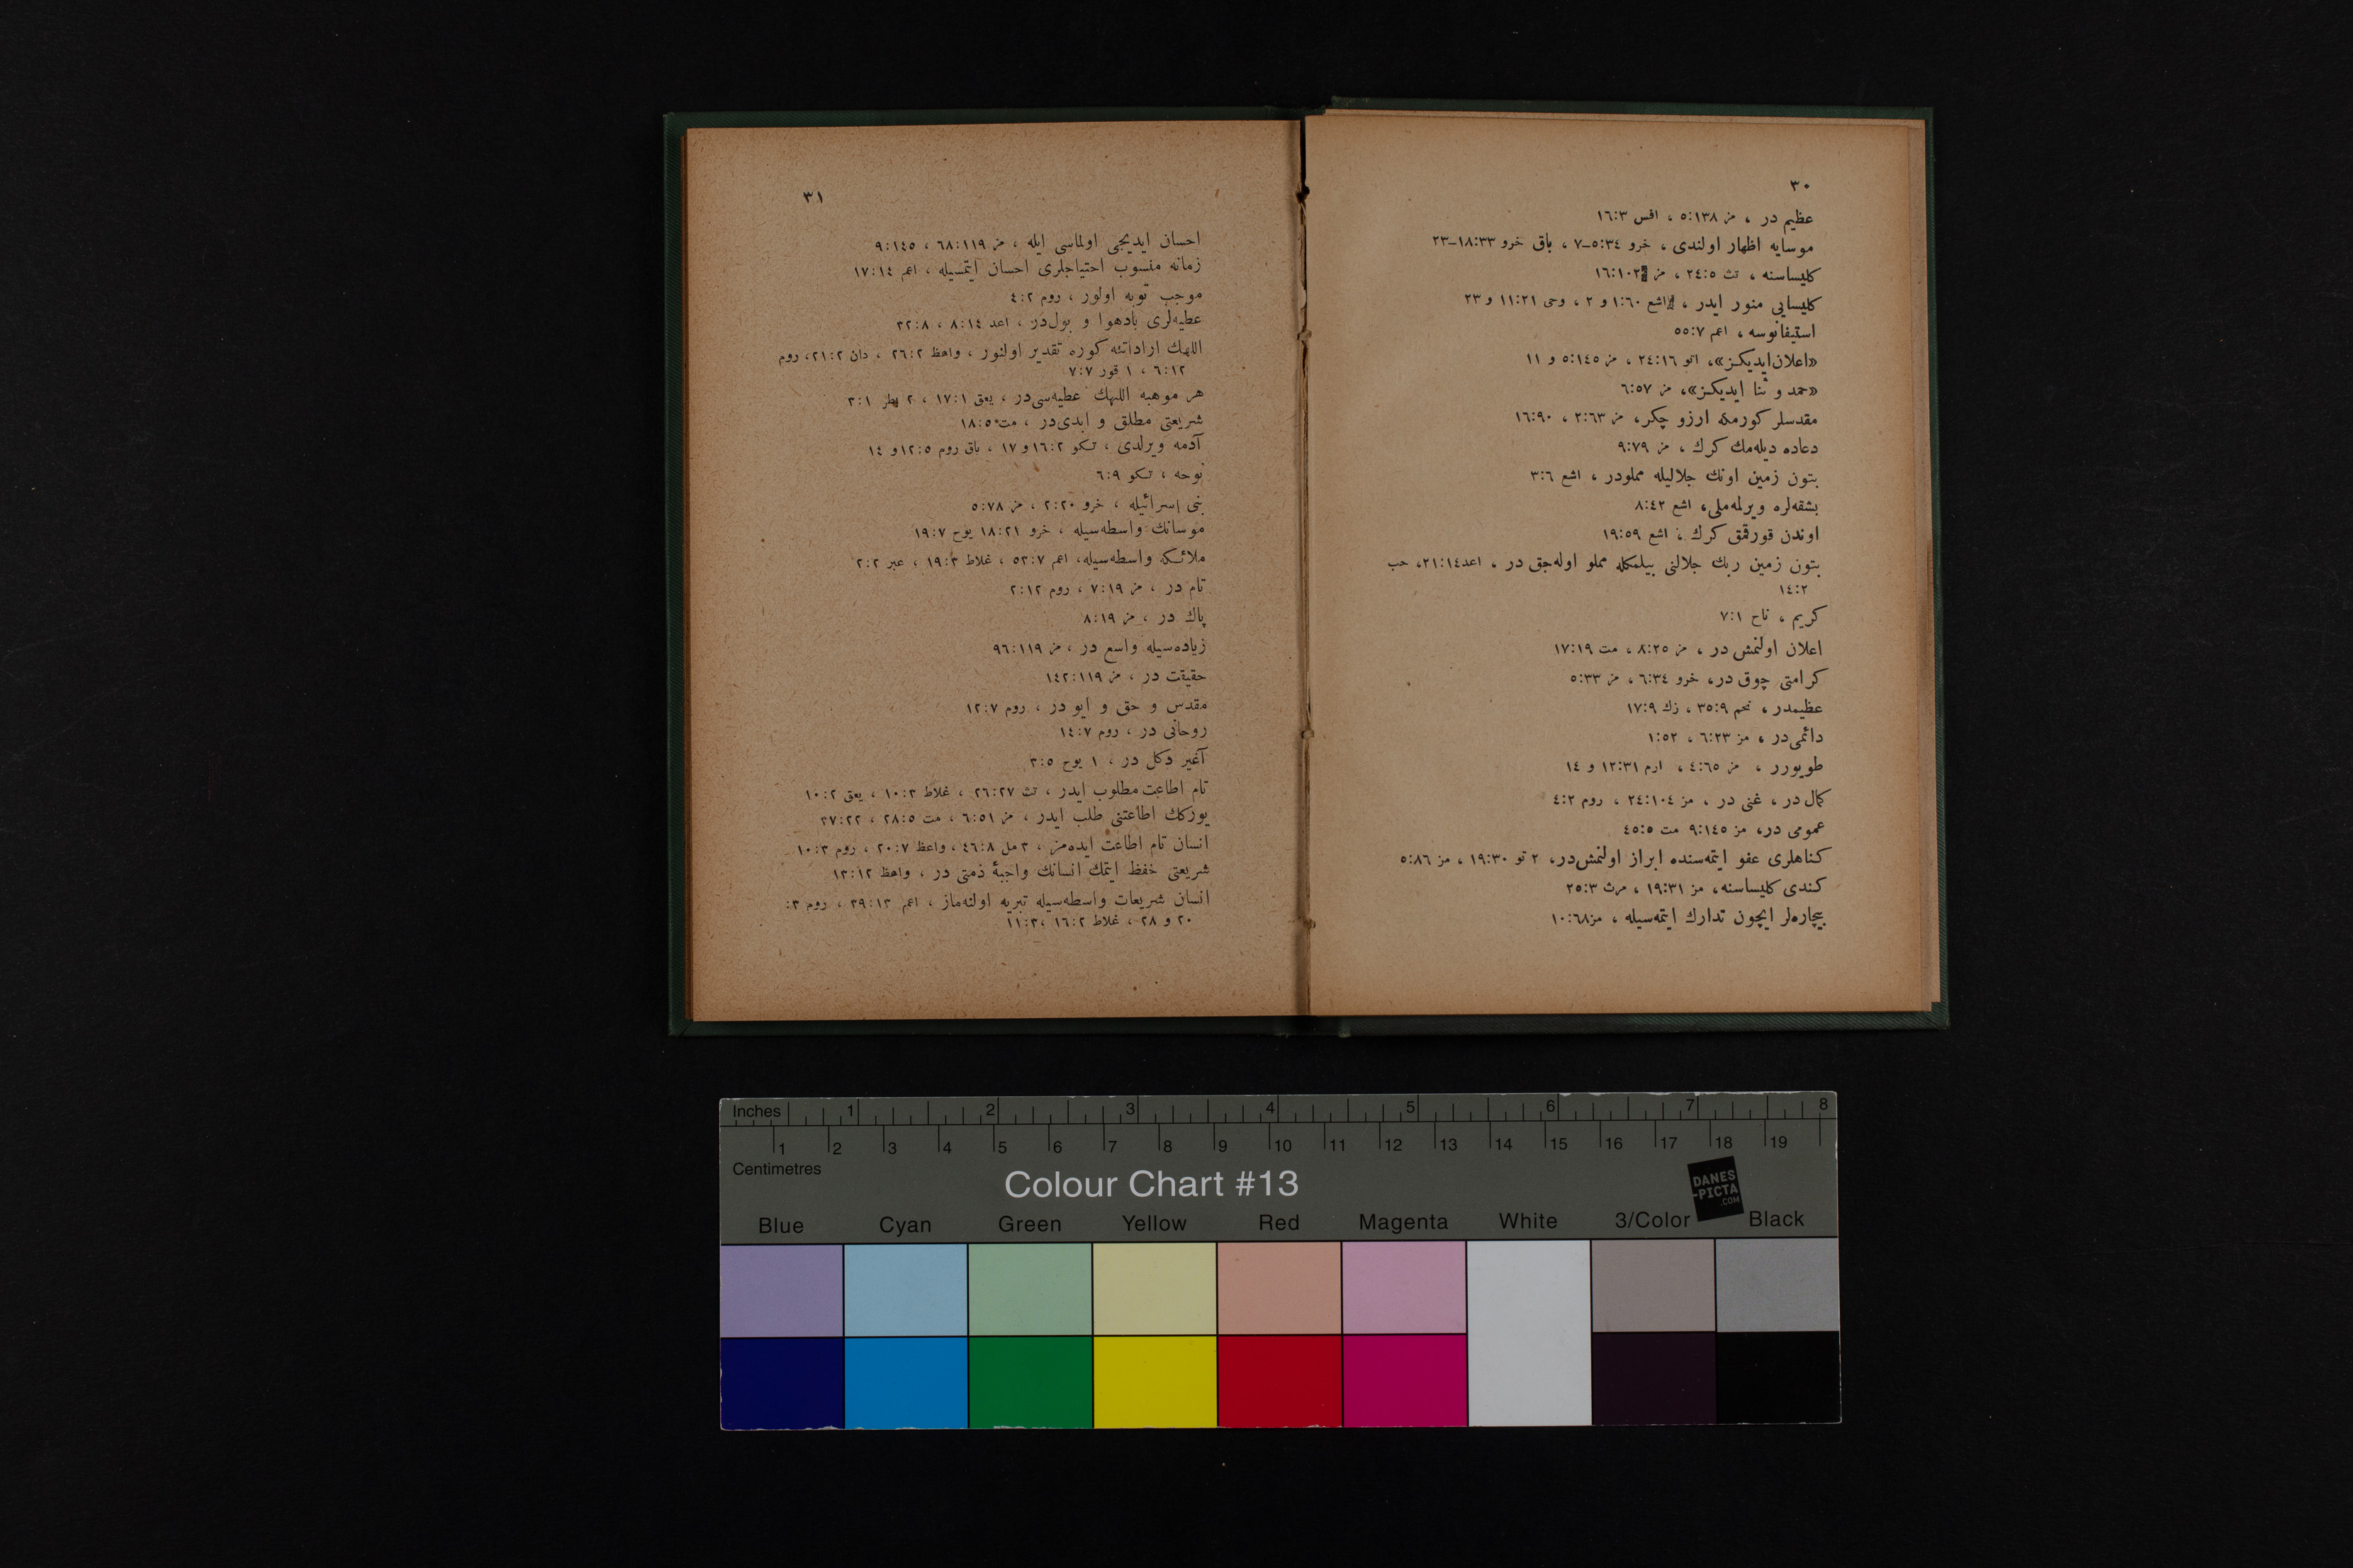 ٣٠
عظيم در ، مز ١٣٨:‏٥ ، افس ٣:‏١٦
موسايه اظهار اولندى ، خرو ٣٤:‏٥–٧ ، باق خرو ٣٣:‏١٨–٢٣
كليساسنه ، تث ٥:‏٢٤ ، مز ١٠٢:‏١٦
كليسايى منور ايدر ، اشع ٦٠:‏١ و ٢ ، وحى ٢١:‏١١ و ٢٣
استيفانوسه ، اعم ٧:‏٥٥
«اعلان‌ايديكز»، اتو ١٦:‏٢٤ ، مز ١٤٥:‏٥ و ١١
«حمد و ثنا ايديكز»، مز ٥٧:‏٦
مقدسلر كورمكه ارزو چكر، مز ٦٣:‏٢ ، ٩٠:‏١٦
دعاده ديله‌مك كرك ، مز ٧٩:‏٩
بتون زمين اونك جلاليله مملودر ، اشع ٦:‏٣
بشقه‌لره ويرلمه‌ملى، اشع ٤٢:‏٨
اوندن قورقمق كرك ، اشع ٥٩:‏١٩
بتون زمين ربك جلالنى بيلمكله مملو اوله‌جق در ، اعد١٤:‏٢١، حب
٢:‏١٤
كريم ، ناح ١:‏٧
اعلان اولنمش در ، مز ٢٥:‏٨ ، مت ١٩:‏١٧
كرامتى چوق در، خرو ٣٤:‏٦ ، مز ٣٣:‏٥
عظيمدر ، نحم ٩:‏٣٥ ، زك ٩:‏١٧
دائمى‌در ، مز ٢٣:‏٦ ، ٥٢:‏١
طويورر ، مز ٦٥:‏٤ ، ارم ٣١:‏١٢ و ١٤
كمال در ، غنى در ، مز ١٠٤:‏٢٤ ، روم ٢:‏٤
عمومى در، مز ١٤٥:‏٩ مت ٥:‏٤٥
كناهلرى عفو ايتمه‌سنده ابراز اولنمش‌در، ٢ تو ٣٠:‏١٩ ، مز ٨٦:‏٥
كندى كليساسنه، مز ٣١:‏١٩ ، مرث ٣:‏٢٥
بيچاره‌لر ايچون تدارك ايتمه‌سيله ، مز٦٨:‏١٠
٣١
احسان ايديجى اولماسى ايله ، مز ١١٩:‏٦٨ ، ١٤٥:‏٩
زمانه منسوب احتياجلرى احسان ايتمسيله ، اعم ١٤:‏١٧
موجب توبه اولور ، روم ٢:‏٤
عطيه‌لرى بادهوا و بول‌در ، اعد ١٤:‏٨ ، ٨:‏٣٢
اللهك اراداتنه كوره تقدير اولنور ، واعظ ٢:‏٢٦ ، دان ٢:‏٢١، روم
١٢:‏٦ ، ١ قور ٧:‏٧
هر موهبه اللهك عطيه‌سى‌در ، يعق ١:‏١٧ ، ٢ بطر ١:‏٣
شريعتى مطلق و ابدى‌در ، مت ٥:‏١٨
آدمه ويرلدى ، تكو ٢:‏١٦و ١٧ ، باق روم ٥:‏١٢و ١٤
نوحه ، تكو ٩:‏٦
بنى إسرائيله ، خرو ٢٠:‏٢ ، مز ٧٨:‏٥
موسانك واسطه‌سيله ، خرو ٢١:‏١٨ يوح ٧:‏١٩
ملائكه واسطه‌سيله، اعم ٧:‏٥٣ ، غلاط ٣:‏١٩ ، عبر ٢:‏٢
تام در ، مز ١٩:‏٧ ، روم ١٢:‏٢
پاك در ، مز ١٩:‏٨
زياده‌سيله واسع در ، مز ١١٩:‏٩٦
حقيقت در ، مز ١١٩:‏١٤٢
مقدس و حق و ايو در ، روم ٧:‏١٢
روحانى در ، روم ٧:‏١٤
آغير دكل در ، ١ يوح ٥:‏٣
تام اطاعت مطلوب ايدر ، تث ٢٧:‏٢٦ ، غلاط ٣:‏١٠ ، يعق ٢:‏١٠
يوركك اطاعتنى طلب ايدر ، مز ٥١:‏٦ ، مت ٥:‏٢٨ ، ٢٢:‏٣٧
انسان تام اطاعت ايده‌مز ، ٣ مل ٨:‏٤٦ ، واعظ ٧:‏٢٠ ، روم ٣:‏١٠
شريعتى خفظ ايتمك انسانك واجبهٔ ذمتى در ، واعظ ١٢:‏١٣
انسان شريعات واسطه‌سيله تبريه اولنه‌ماز ، اعم ١٣:‏٣٩ ، روم ٣:
٢٠ و ٢٨ ، غلاط ٢:‏١٦ ،٣:‏١١
Inches 1 2 3 4 5 6 7 8
1 2 3 4 5 6 7 8 9 10 11 12 13 14 15 16 17 18 19
Centimetres
Colour Chart #13
DANES
-PICTA
.COM
Blue Cyan Green Yellow Red Magenta White 3/Color Black